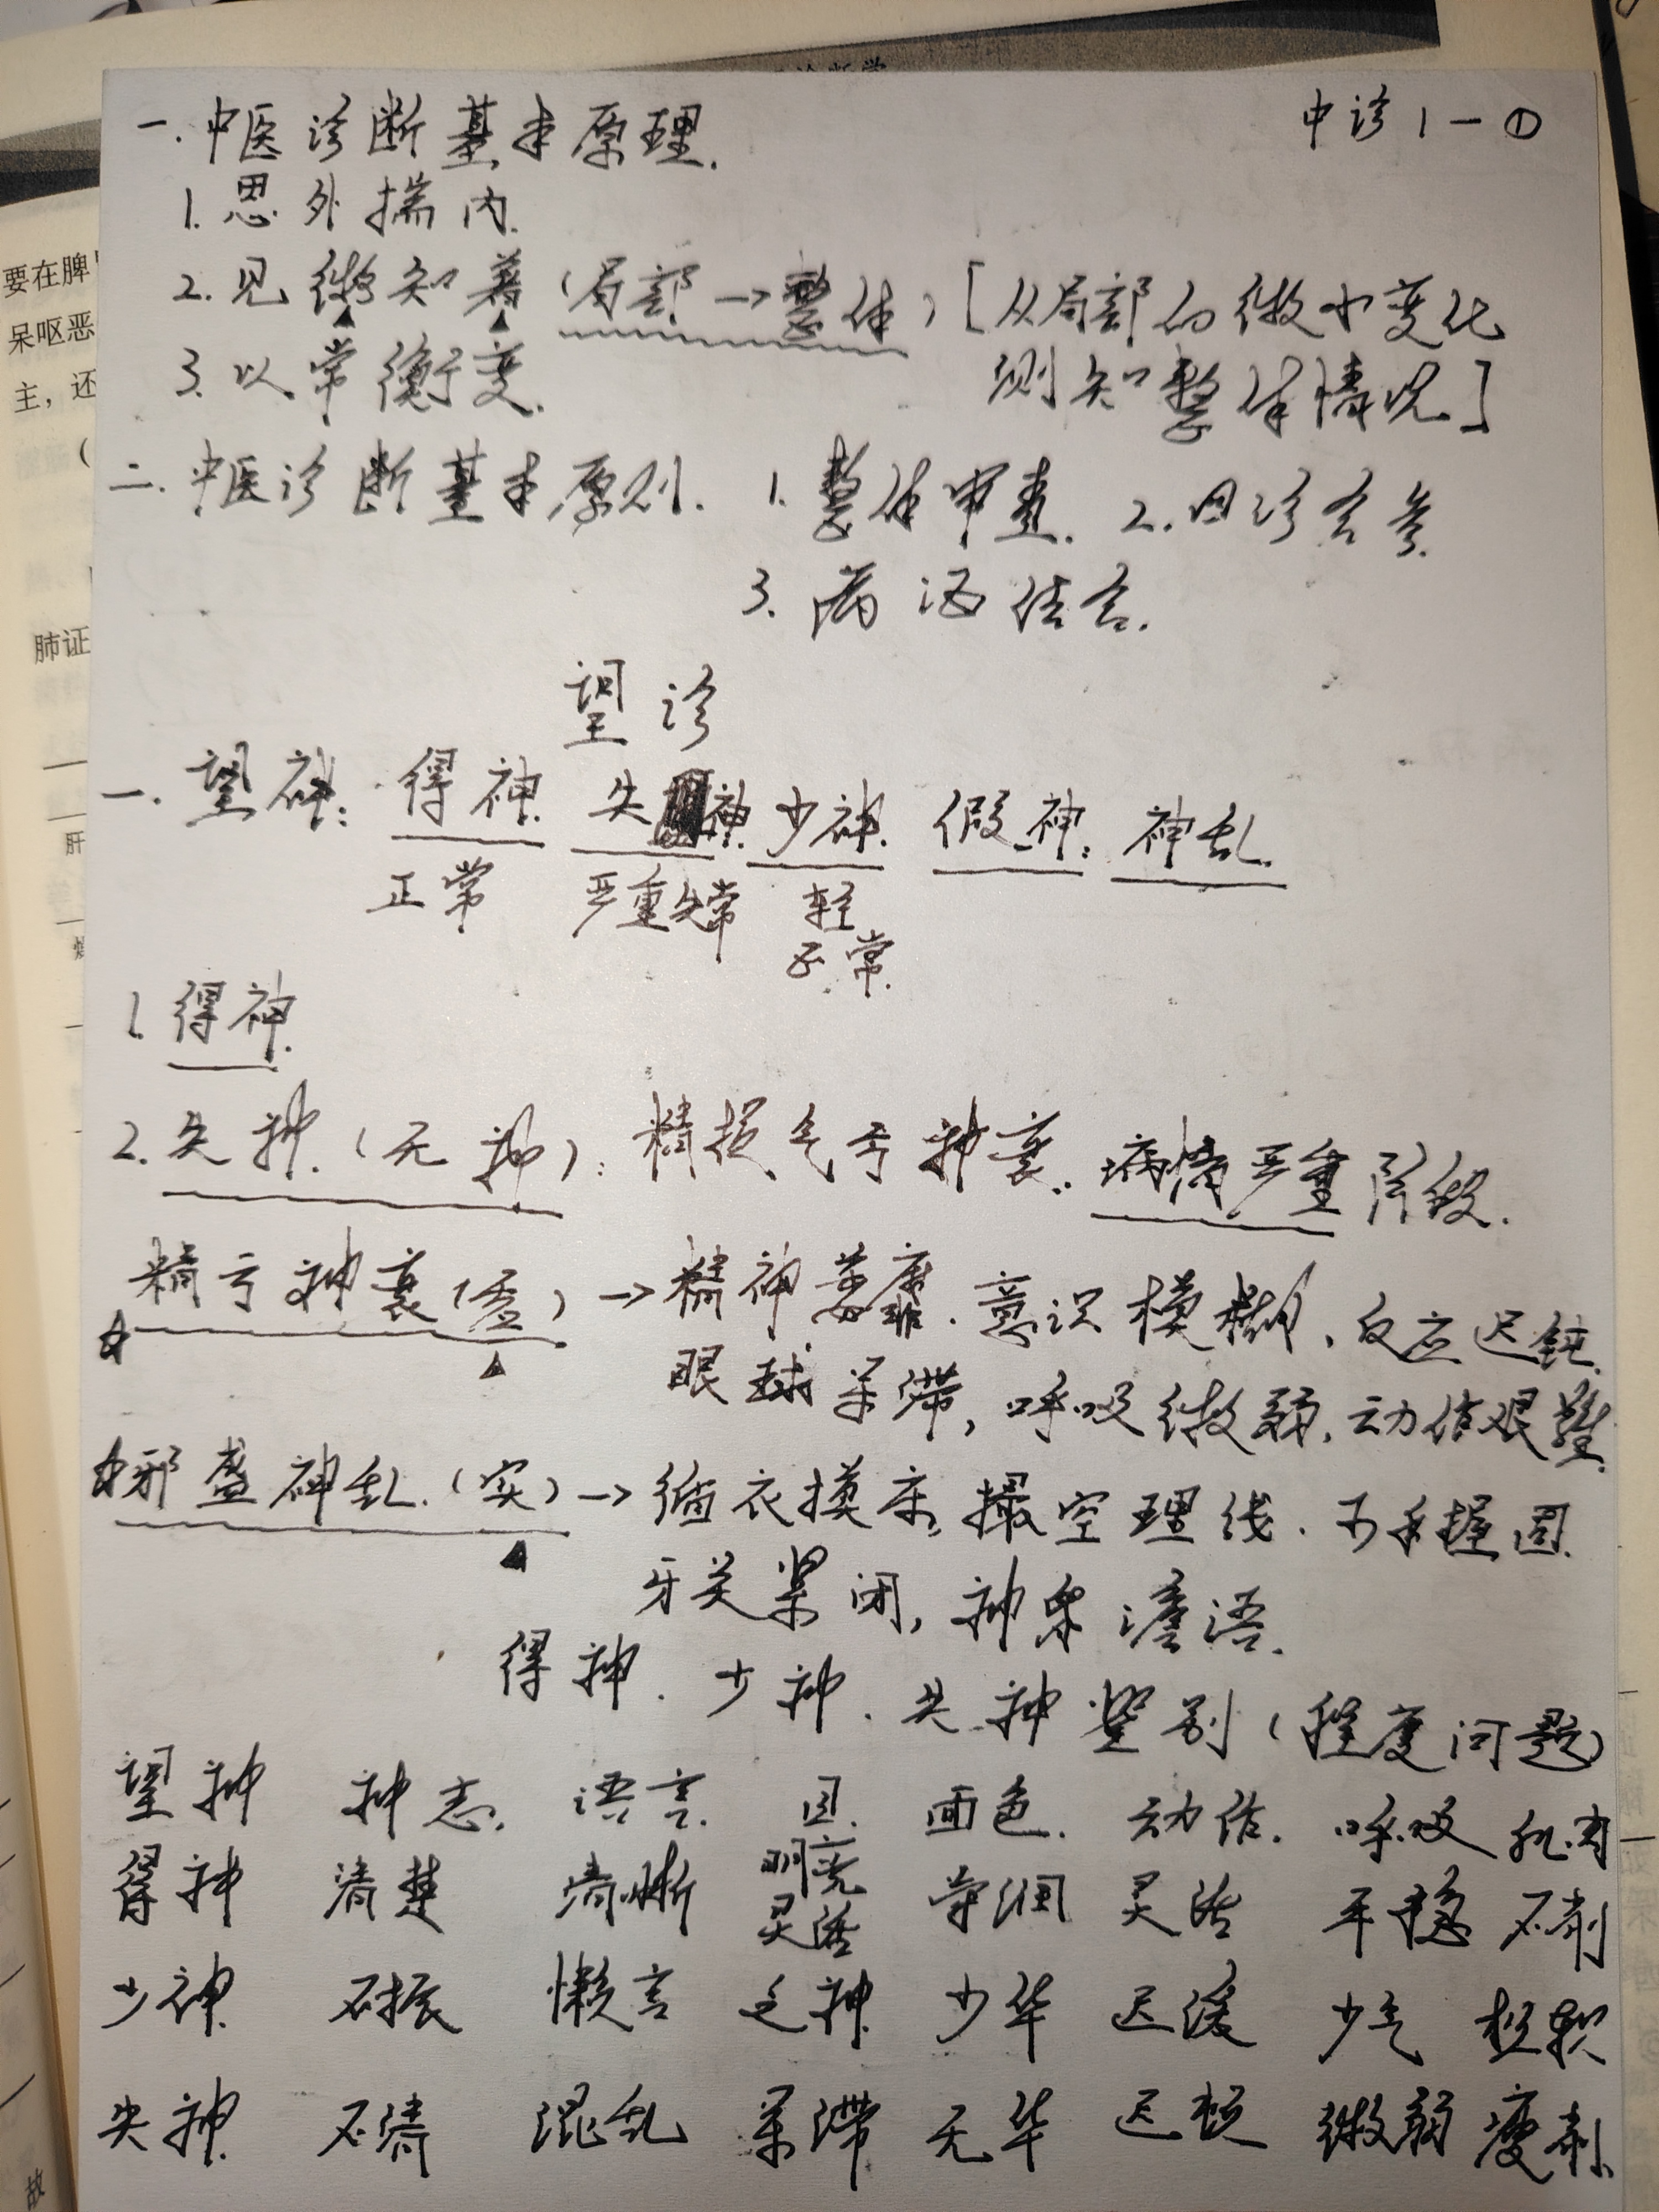 中诊1-①
一.中医诊断基本原理.
1.思外揣内.
2.见微知著(局部→整体)[从局部的微小变化
测知整体情况]
3.以常衡变.
二.中医诊断基本原则. 1.整体审查. 2.四诊合参.
3.病证结合.
望诊
一.望神: 得神. 失神. 少神. 假神; 神乱.
正常 严重失常 轻
正常.
1.得神.
2.失神.(无神): 精损气亏神衰. 病情严重阶段.
精亏神衰(虚)→精神萎靡. 意识模糊, 反应迟钝.
眼球呆滞, 呼吸微弱, 动作艰难.
邪盛神乱.(实)→循衣摸床, 撮空理线. 握固.
牙关紧闭, 神昏谵语.
得神. 少神. 失神鉴别(程度问题)
望神 神志. 语言. 目. 面色. 动作. 呼吸 肌肉
得神 清楚 清晰 明亮灵活 荣润 灵活 平稳 不削
少神. 不振 懒言 乏神. 少华 迟缓 少气 松软
失神. 不清 混乱 呆滞 无华 迟钝 微弱 瘦削
要在脾
呆呕恶
主，还
(
肺证
肝
故